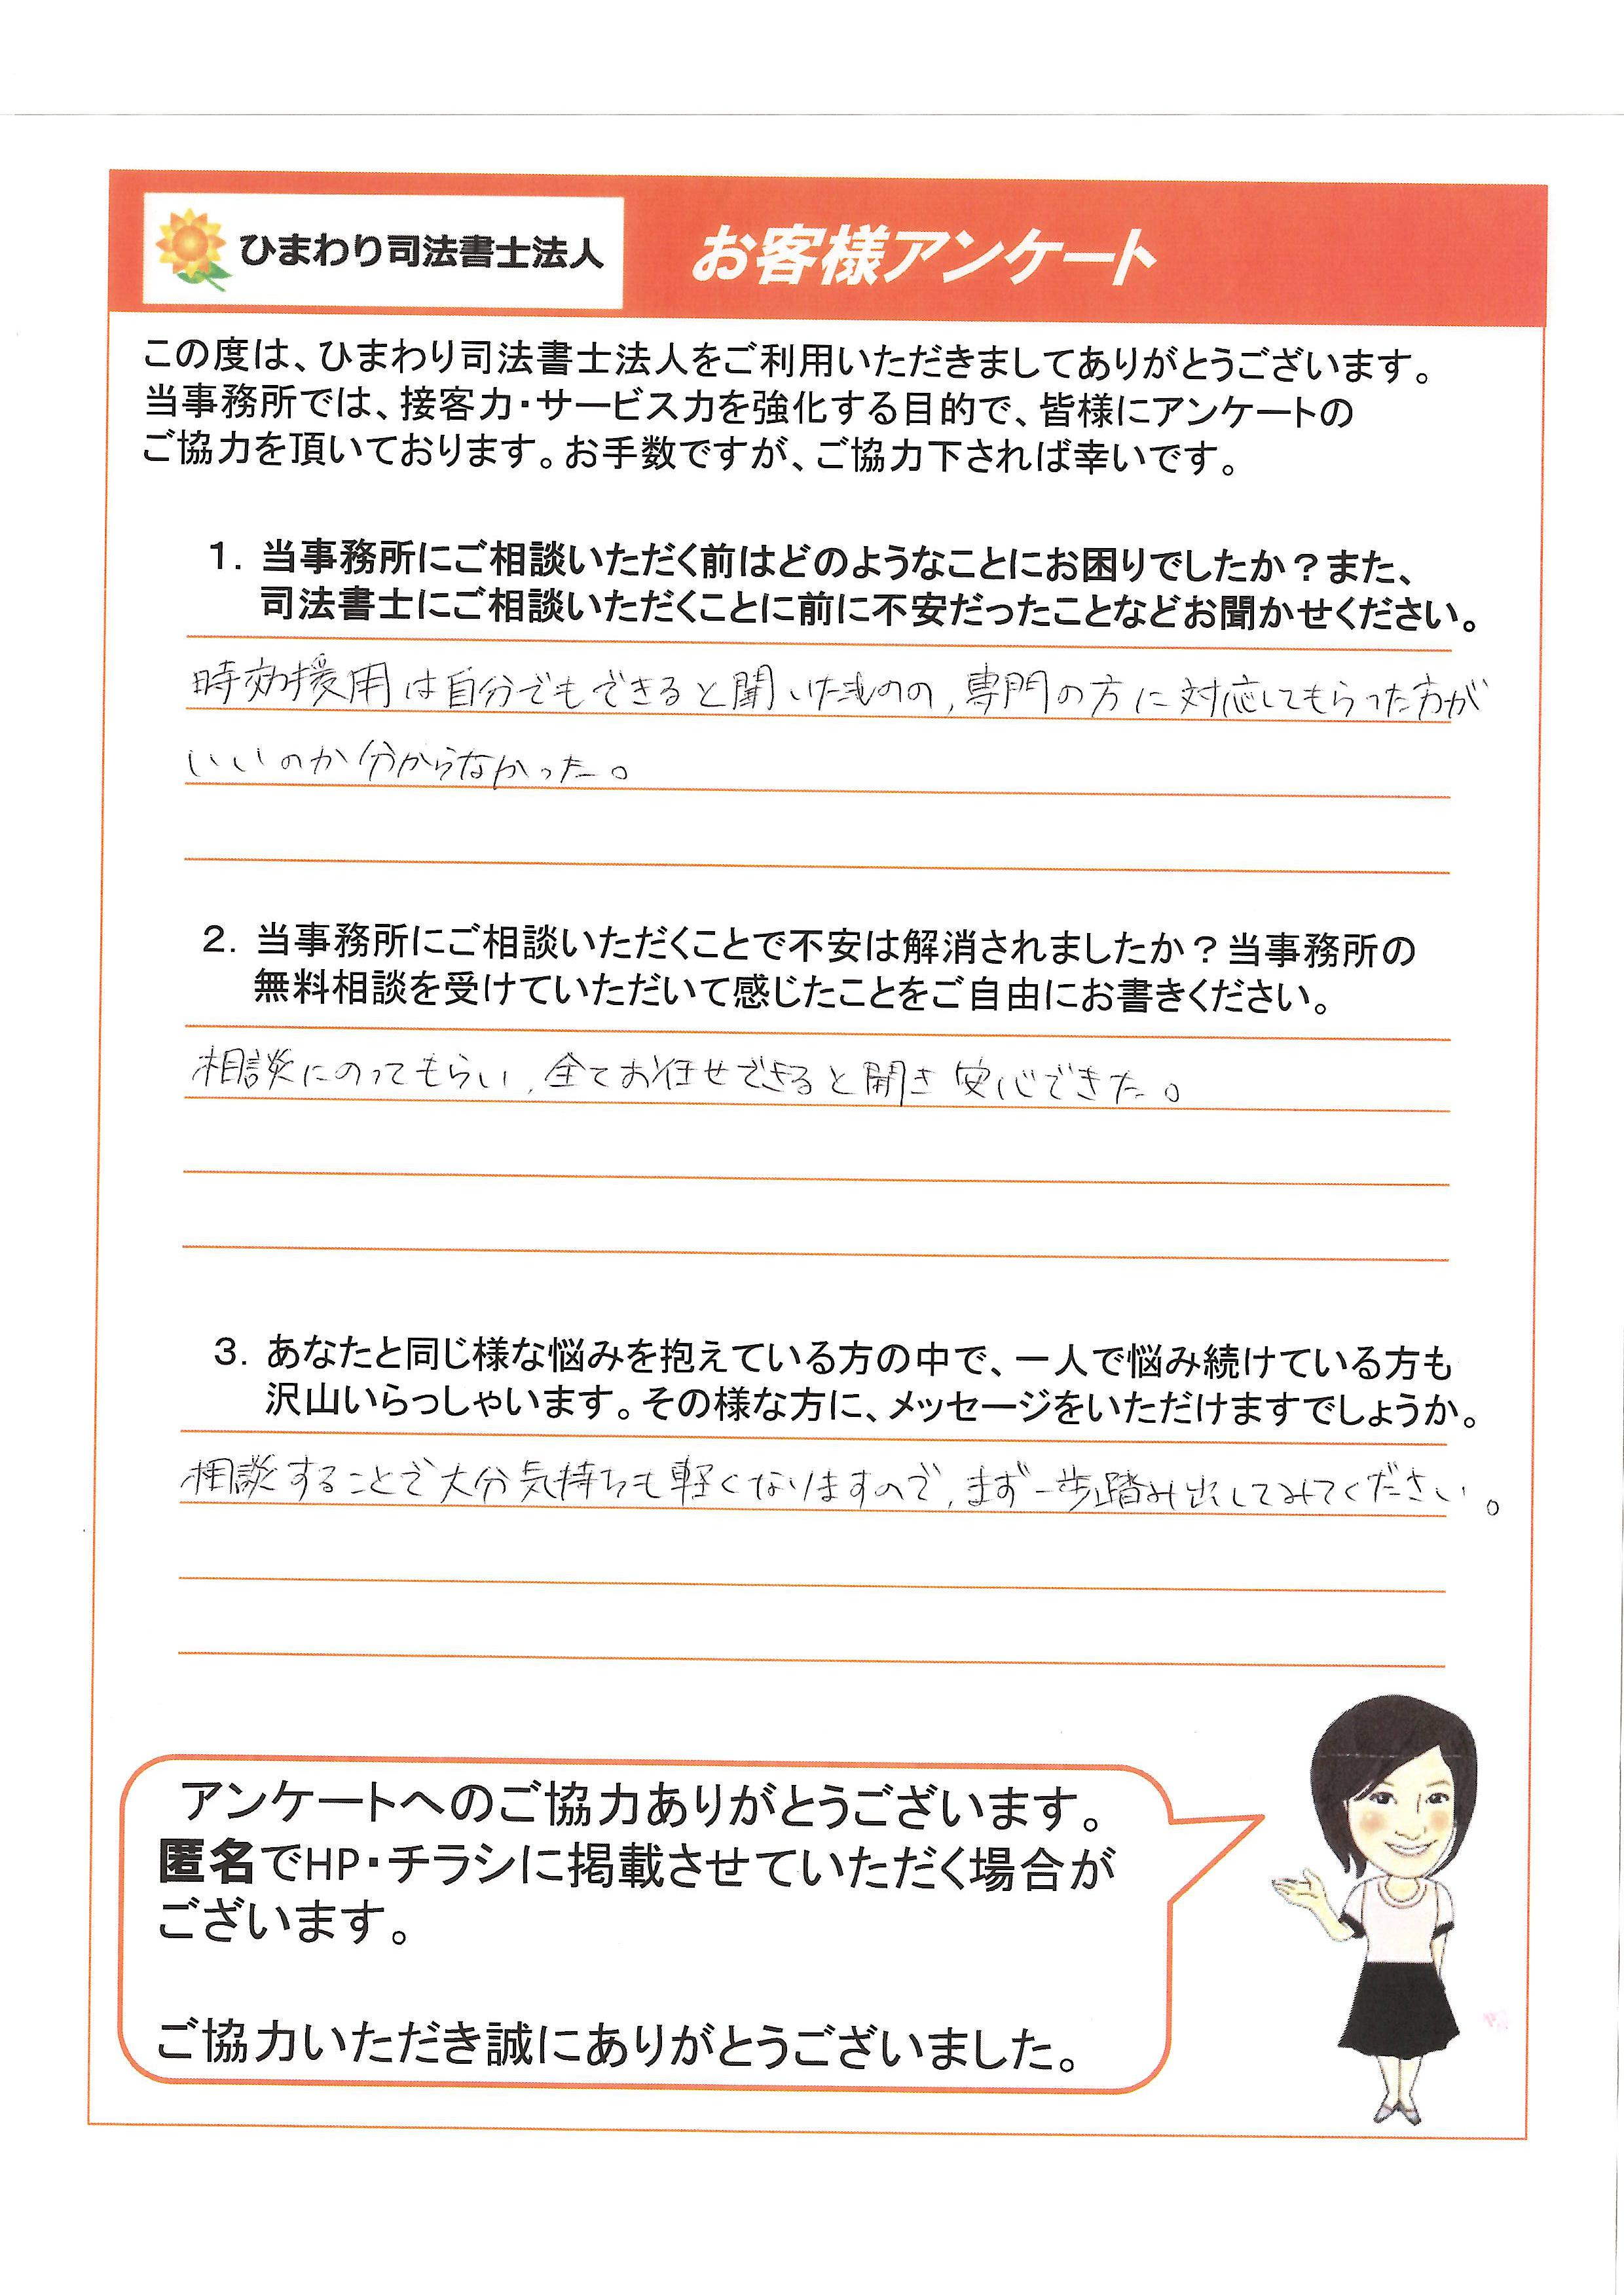 ひまわり司法書士法人
お客様アンケート
この度は、ひまわり司法書士法人をご利用いただきましてありがとうございます。
当事務所では、接客力・サービス力を強化する目的で、皆様にアンケートの
ご協力を頂いております。お手数ですが、ご協力下されば幸いです。
1．当事務所にご相談いただく前はどのようなことにお困りでしたか？また、
司法書士にご相談いただくことに前に不安だったことなどお聞かせください。
時効援用は自分でもできると聞いたものの、専門の方に対応してもらった方が
いいのか分からなかった。
2．当事務所にご相談いただくことで不安は解消されましたか？当事務所の
無料相談を受けていただいて感じたことをご自由にお書きください。
相談にのってもらい、全てお任せできると聞き安心できた。
3．あなたと同じ様な悩みを抱えている方の中で、一人で悩み続けている方も
沢山いらっしゃいます。その様な方に、メッセージをいただけますでしょうか。
相談することで大分気持ちも軽くなりますので、まず一歩踏み出してみてください。
アンケートへのご協力ありがとうございます。
匿名でHP・チラシに掲載させていただく場合が
ございます。
ご協力いただき誠にありがとうございました。